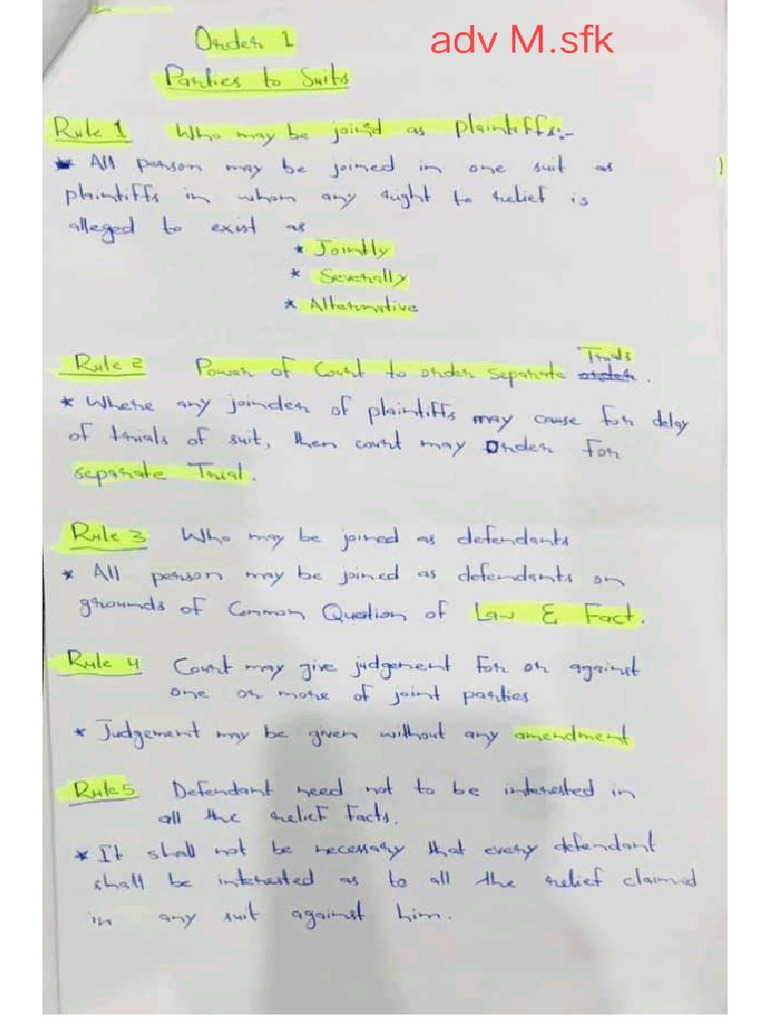 Order 1
adv M.sfk
Parties to Suits
Rule 1 Who may be joined as plaintiffs:-
* All person may be joined in one suit as
plaintiffs in whom any right to relief is
alleged to exist as
* Jointly
* Severally
* Alternative
Rule 2 Power of Court to order separate Trials order.
* Where any joinder of plaintiffs may cause for delay
of trials of suit, then court may Order for
separate Trial.
Rule 3 Who may be joined as defendants
* All person may be joined as defendants on
grounds of Common Question of Law & Fact.
Rule 4 Court may give judgement for or against
one or more of joint parties
* Judgement may be given without any amendment
Rule 5 Defendant need not to be interested in
all the relief facts.
* It shall not be necessary that every defendant
shall be interested as to all the relief claimed
in any suit against him.